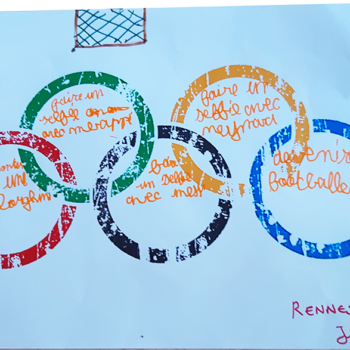 faire un
selfie
avec mbappé
faire un
selfie avec
neymar
un
un selfie
avec mess
devenir
footballe
RENNE